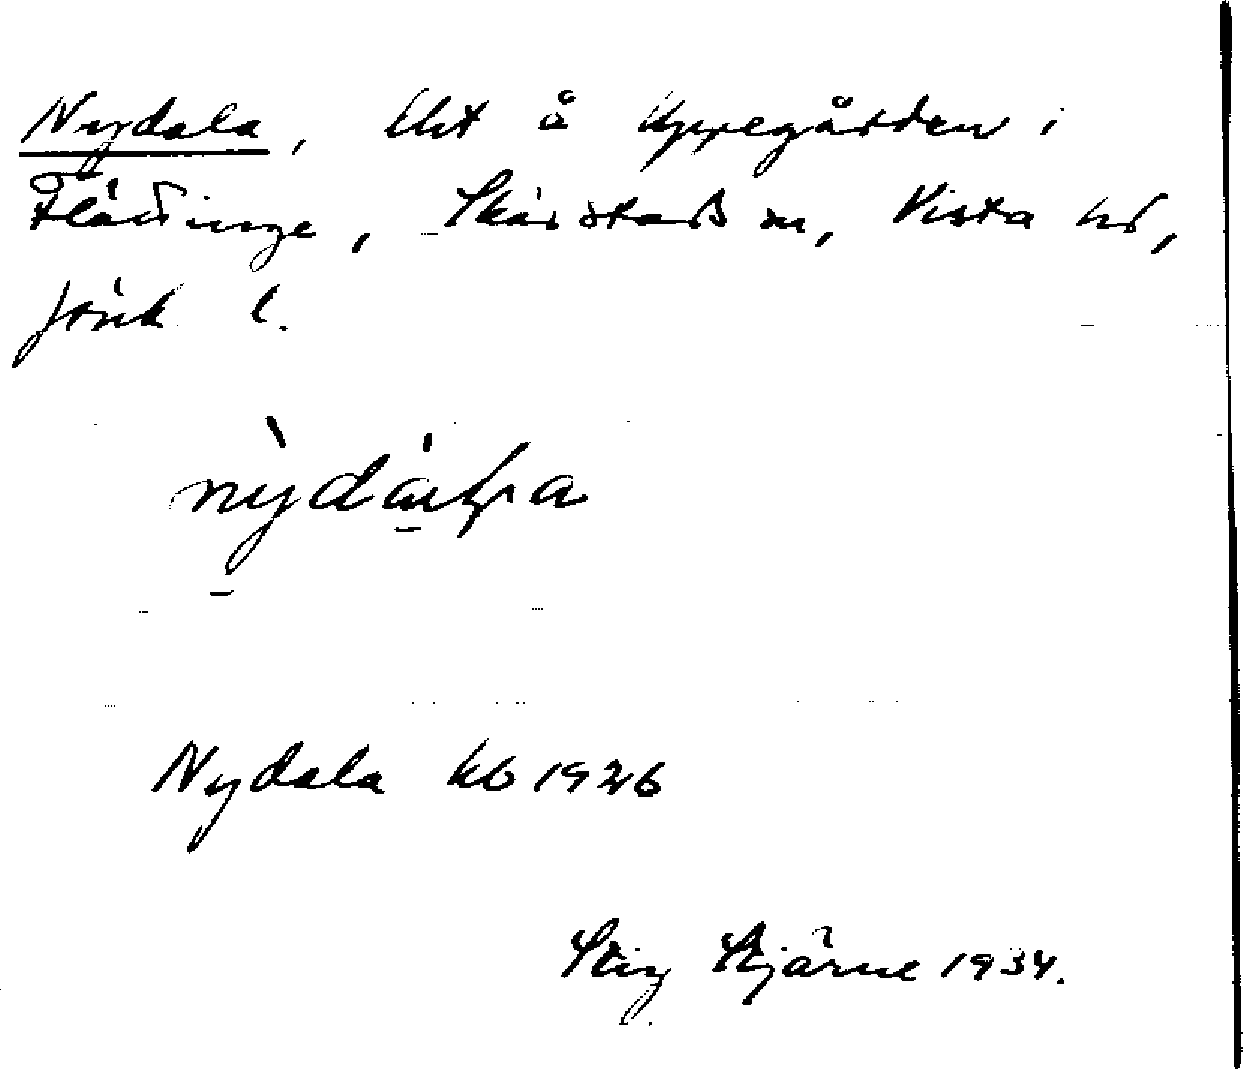 Nydala, lht å Uppegården i
Flättinge, Skärstads sn, Vista hd,
Jönk l.
Nydala kb 1926
Stig Stjärne 1934.